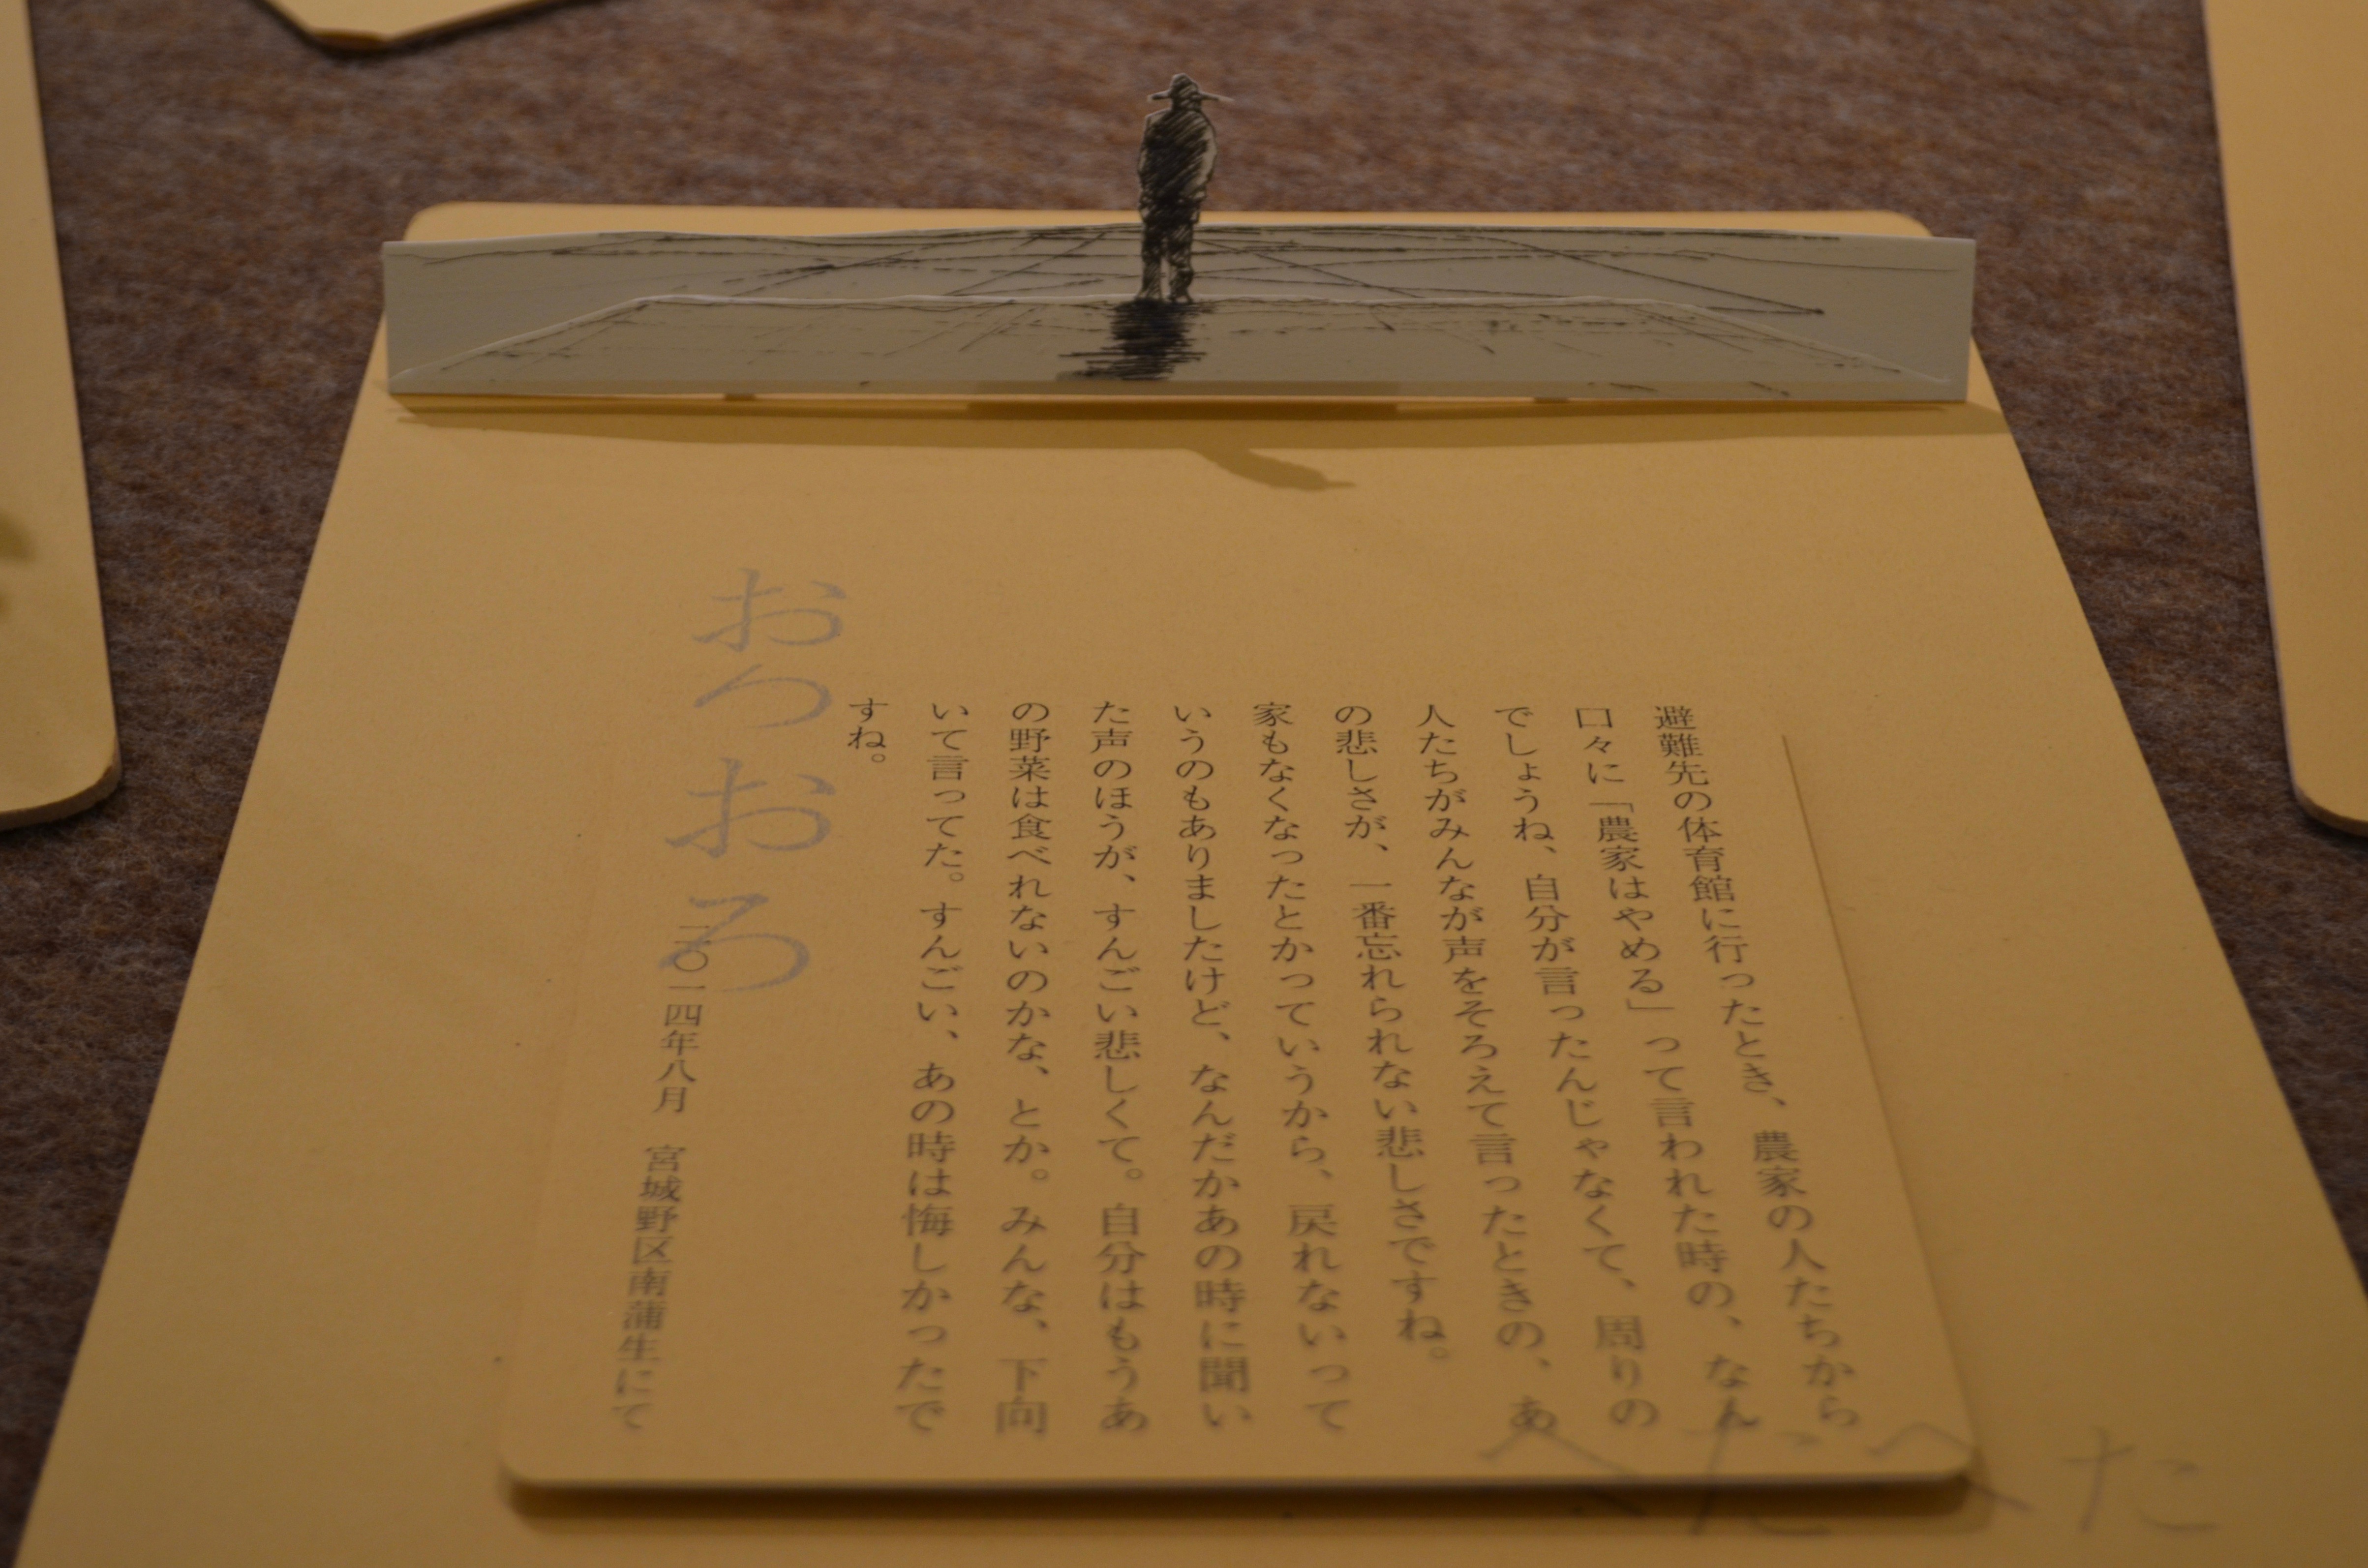 避難先の体育館に行ったとき、農家の人たちから
口々に「農家はやめる」って言われた時の、なん
でしょうね、自分が言ったんじゃなくて、周りの
人たちがみんなが声をそろえて言ったときの、あ
の悲しさが、一番忘れられない悲しさですね。
家もなくなったとかっていうから、戻れないって
いうのもありましたけど、なんだかあの時に聞い
た声のほうが、すんごい悲しくて。自分はもうあ
の野菜は食べれないのかな、とか。みんな、下向
いて言ってた。すんごい、あの時は悔しかったで
すね。
おろおろ
二〇一四年八月　宮城野区南蒲生にて
へたへた